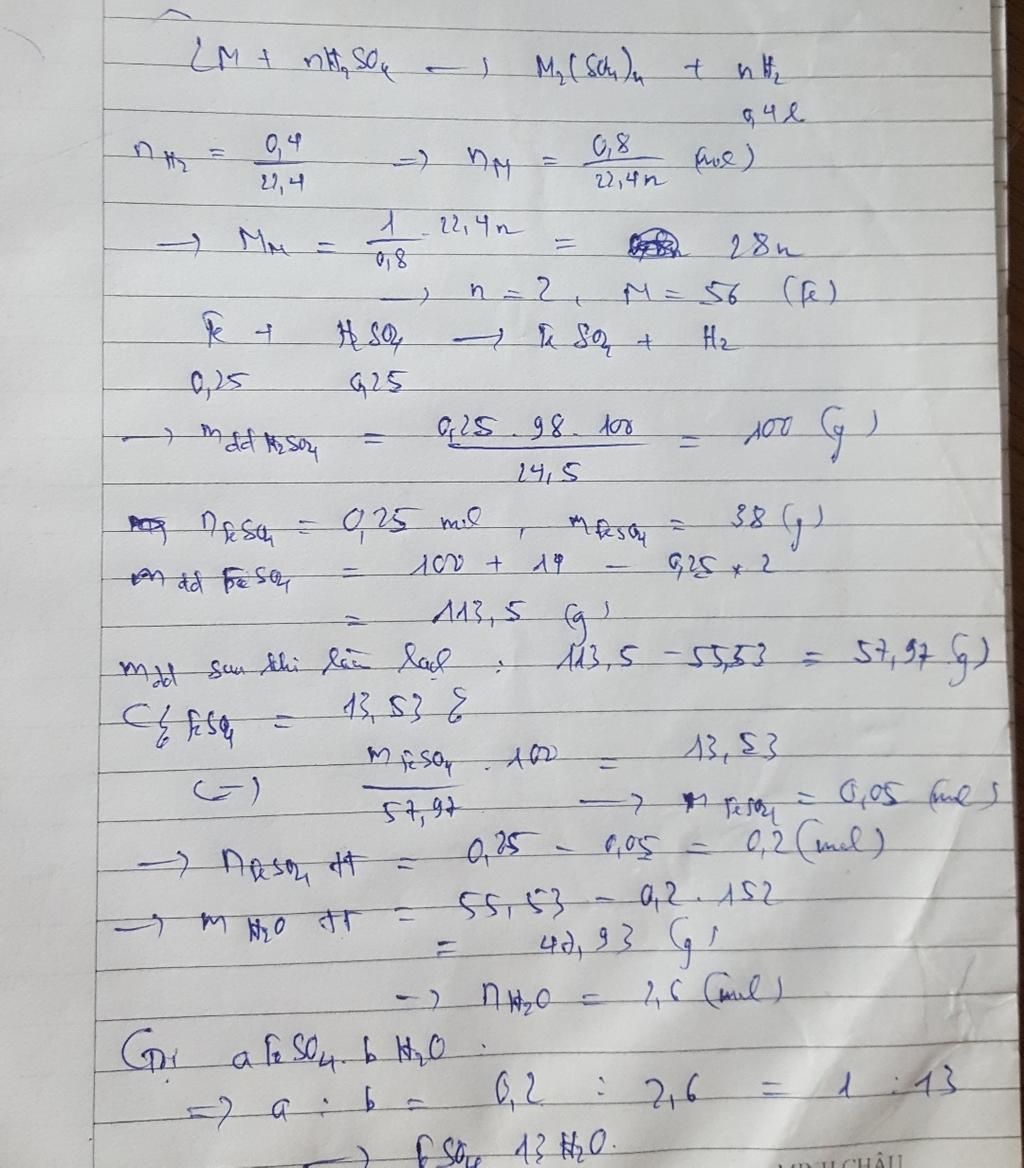 2M + nH₂SO₄ → M₂(SO₄)ₙ + nH₂
0,4 l
n H₂ = 0,4/22,4 => n M = 0,8/22,4n (mol)
→ M M = 1/0,8 . 22,4n = 28n
→ n = 2, M = 56 (Fe)
Fe + H₂SO₄ → FeSO₄ + H₂
0,25 0,25
→ m dd H₂SO₄ = 0,25 . 98 . 100/24,5 = 100 (g)
n FeSO₄ = 0,25 mol, m FeSO₄ = 38 (g)
m dd FeSO₄ = 100 + 14 - 0,25 × 2
= 113,5 (g)
m dd sau khi làm lạnh : 113,5 - 55,53 = 57,97 (g)
C% FeSO₄ = 13,53 %
<=> m FeSO₄/57,97 . 100 = 13,53
→ n FeSO₄ = 0,05 (mol)
→ n FeSO₄ tt = 0,25 - 0,05 = 0,2 (mol)
→ m H₂O tt = 55,53 - 0,2 . 152
= 47,93 (g)
→ n H₂O = 2,6 (mol)
Gọi aFeSO₄.bH₂O :
=> a : b = 0,2 : 2,6 = 1 : 13
→ FeSO₄ 13H₂O.
MINH CHÂU